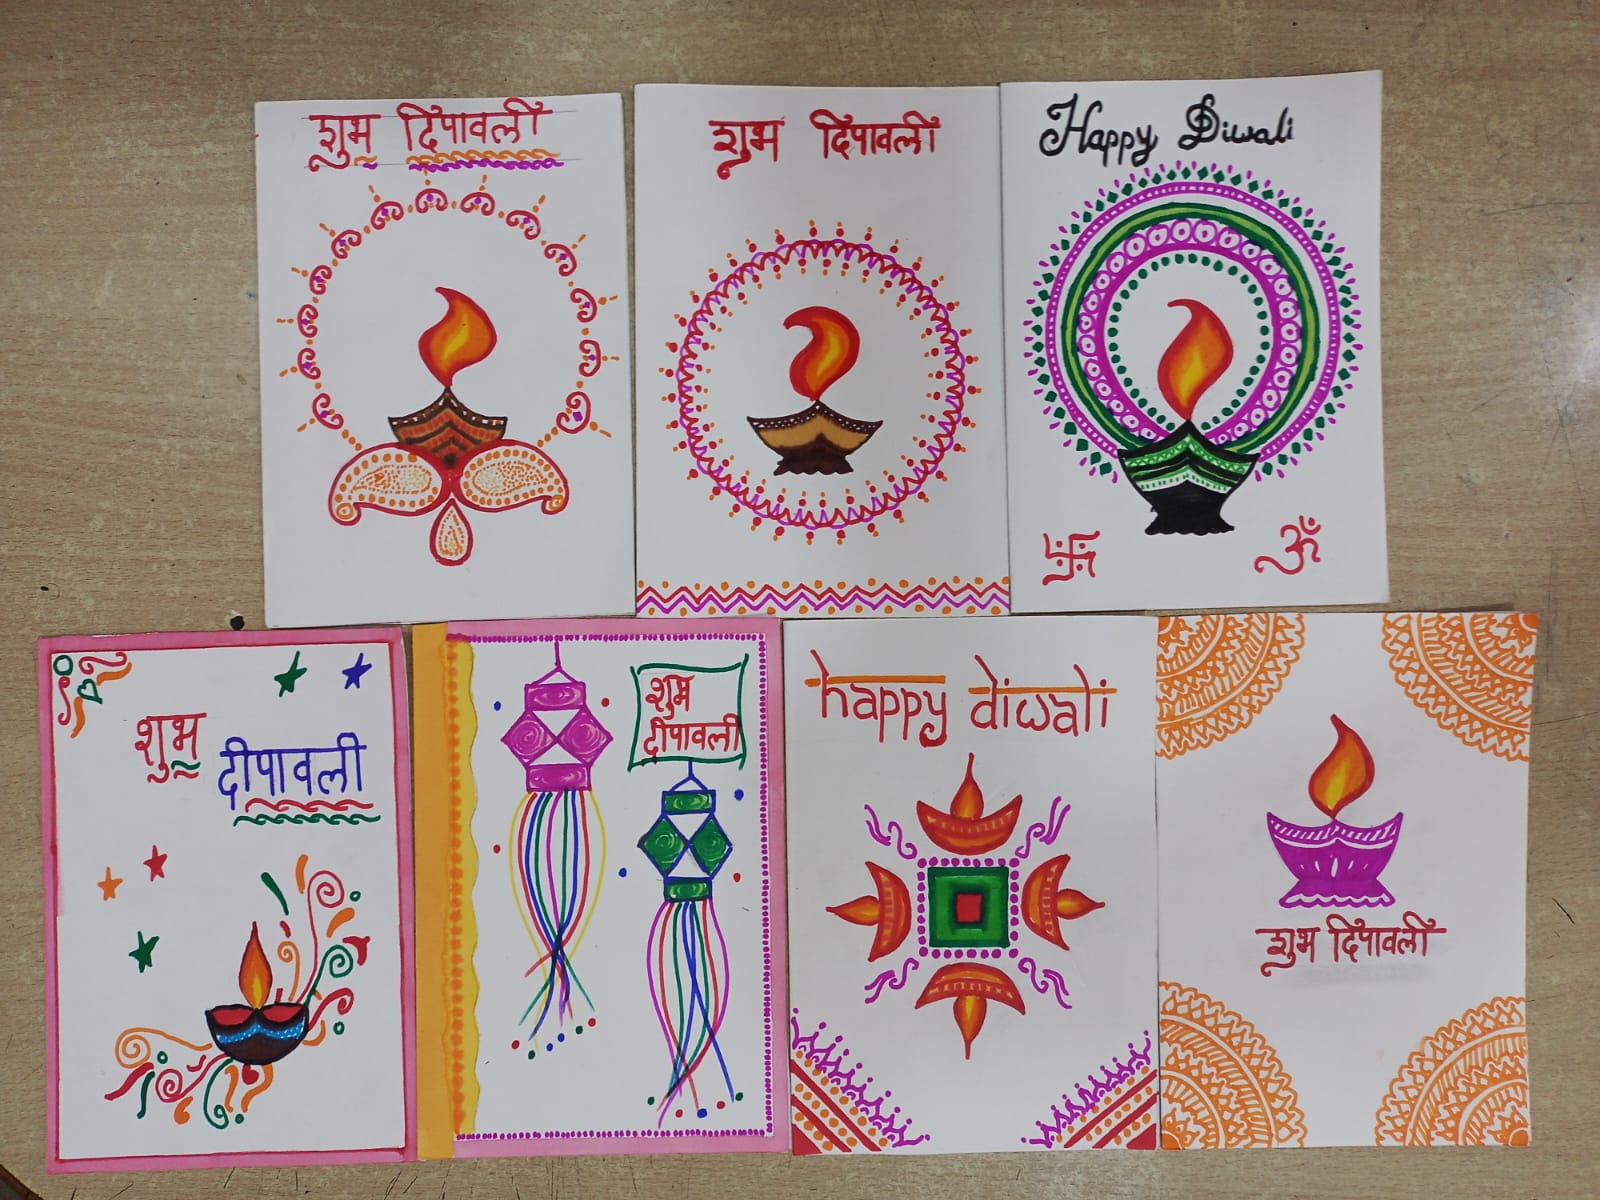 शुभ दिपावली
शुभ दिपावली
Happy Diwali
ॐ
शुभ
दीपावली
शुभ
दीपावली
happy diwali
शुभ दिपावली